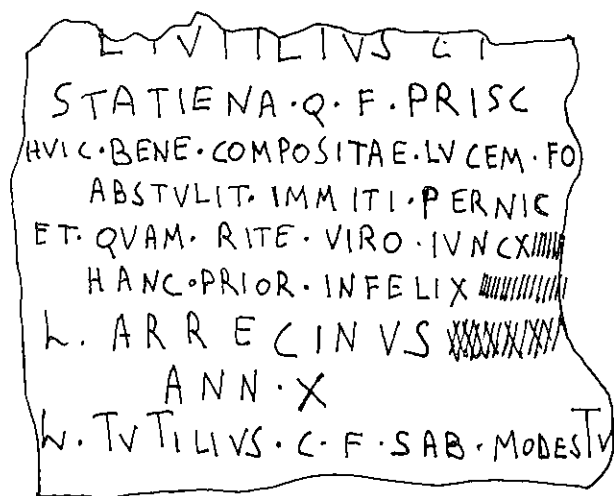 L TVTILIVS L I
STATIENA·Q·F·PRISC
HVIC·BENE·COMPOSITAE·LVCEM·FO
ABSTVLIT·IMMITI·PERNIC
ET·QVAM·RITE·VIRO·IVNCX
HANC·PRIOR·INFELIX
L. ARRECINVS
ANN·X
L·TVTILIVS·C·F·SAB·MODESTV